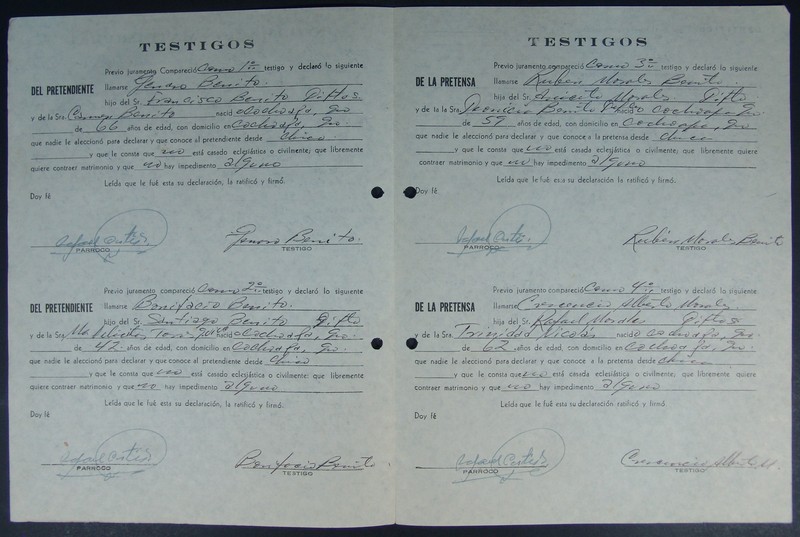 TESTIGOS
Previo juramento Compareció Como 1er testigo y declaró lo siguiente
DEL PRETENDIENTE llamarse Genaro Benito.
hijo del Sr. Francisco Benito Giftos.
y de la Sra. Benito nació Cochoapa, Gro
de 66 años de edad, con domicilio en Cochoapa, Gro
que nadie le aleccionó para declarar y que conoce al pretendiente desde Chico
y que le consta que no está casado eclesiástica o civilmente; que libremente
contraer matrimonio y que no hay impedimento alguno
Leída que le fué esta su declaración, la ratificó y firmó.
Doy fé
Rafael
PARROCO
Genaro Benito.
TESTIGO
Previo juramento compareció Como 2o testigo y declaró lo siguiente
DEL PRETENDIENTE llamarse Bonifacio Benito.
hijo del Sr. Santiago Benito Gifto
y de la Sra. Ma. nació Cochoapa, Gro.
de 42 años de edad, con domicilio en Cochoapa, Gro.
que nadie le aleccionó para declarar y que conoce al pretendiente desde Chico
y que le consta que no está casado eclesiástica o civilmente: que libremente
quiere contraer matrimonio y que no hay impedimento alguno
Leída que le fué esta su declaración, la ratificó y firmó.
Doy fé
Rafael
PARROCO
Bonifacio Benito
TESTIGO
TESTIGOS
Previo juramento compareció Como 3o testigo y declaró lo siguiente
DE LA PRETENSA llamarse Ruben Morales Benito.
hija del Sr. Morales Gifto
y de la la Sra. Benito Cochoapa, Gro
de 57 años de edad, con domicilio en Cochoapa, Gro
que nadie le aleccionó para declarar y que conoce a la pretensa desde Chica
y que le consta que no está casada eclesiástica o civilmente; que libremente
quiere contraer matrimonio y que no hay impedimento alguno
Leída que le fué esta su declaración la ratificó y firmó.
Doy fé
Rafael
PARROCO
Rubén Morales Benito
TESTIGO
Previo juramento compareció Como 4o testigo y declaró lo siguiente
DE LA PRETENSA llamarse Crescencio Alberto Morales.
hija del Sr. Rafael Morales Giftos
y de la Sra. Trinidad Nicolás nació Cochoapa, Gro.
de 62 años de edad, con domicilio en Cochoapa, Gro.
que nadie le aleccionó para declarar y que conoce a la pretensa desde Chica
y que le consta que no está casada eclesiástica o civilmente; que libremente
quiere contraer matrimonio y que no hay impedimento alguno
Leída que le fué esta su declaración, la ratificó y firmó.
Doy fé
Rafael
PARROCO
Crescencio Alberto M.
TESTIGO